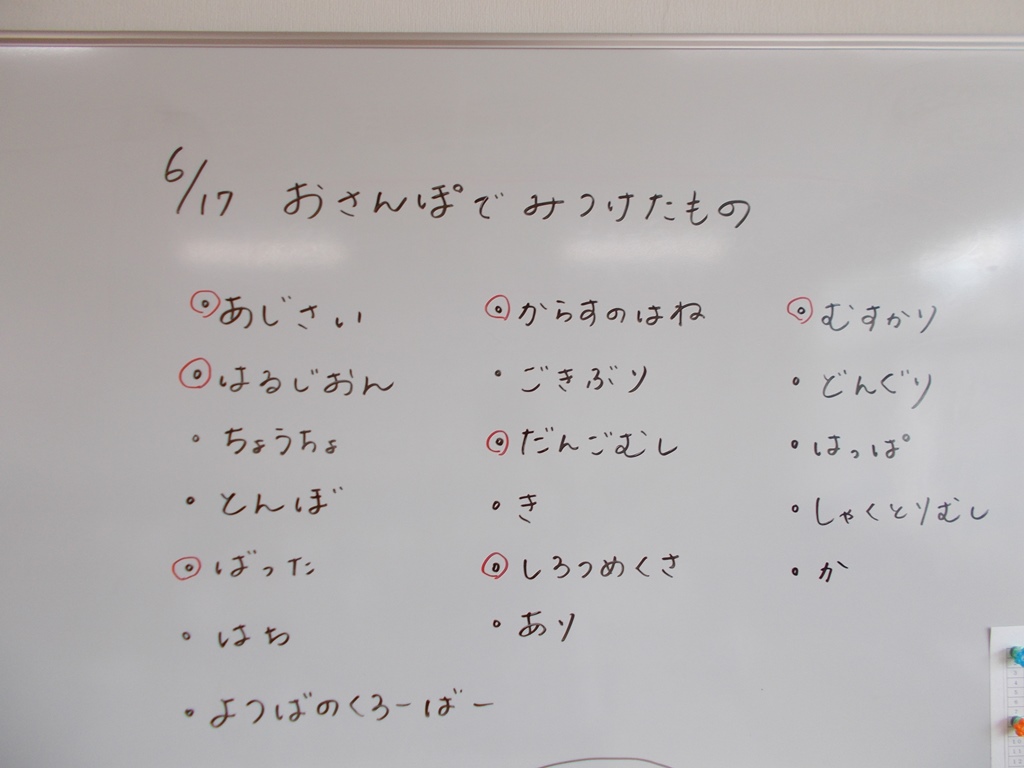 6/17 おさんぽで みつけたもの
あじさい
はるじおん
・ちょうちょ
・とんぼ
ばった
・はち
・よつばのくろーばー
からすのはね
・ごきぶり
だんごむし
・き
しろつめくさ
・あり
むすかり
・どんぐり
・はっぱ
・しゃくとりむし
・か